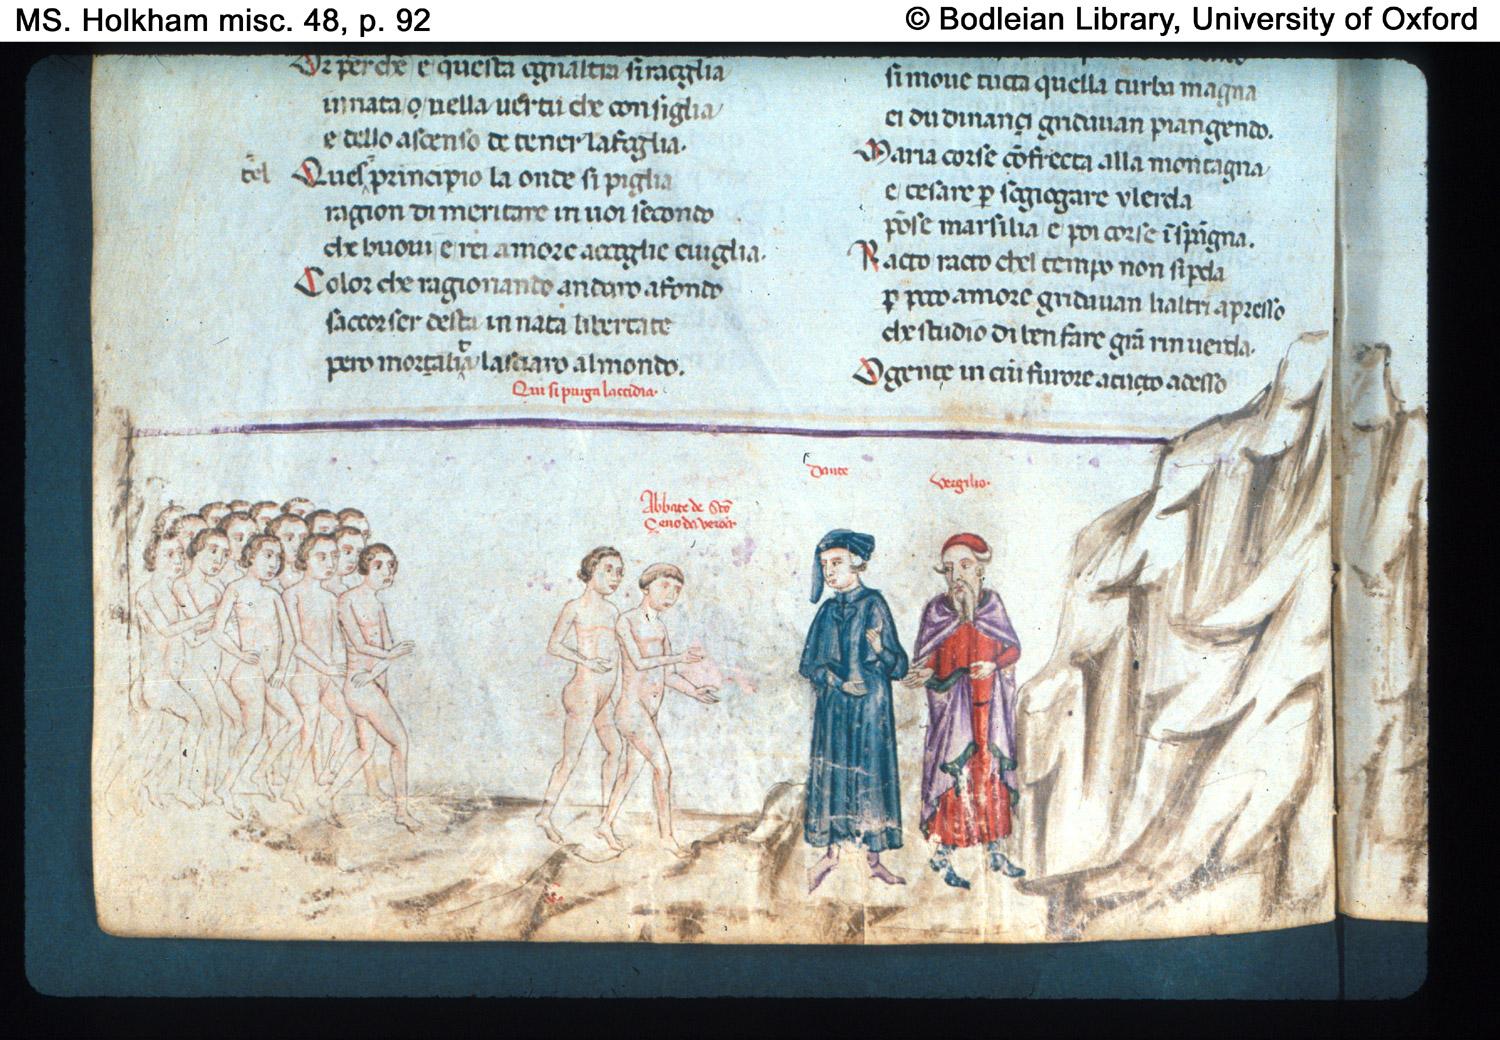 MS. Holkham misc. 48, p. 92
© Bodleian Library, University of Oxford
Or perche e questa ognaltra si racoglia
innata o uella uertu che consiglia
e dello assenso de tener la soglia.
Ques principio la onde si piglia
ragion di meritare in uoi secondo
che buoui e rei amore accoglie e uiglia.
Color che ragionando andaro a fondo
saccorser desta innata libertate
pero moralita lasciaro al mondo.
si moue tucta quella turba magna
e du dinançi gridauan piangendo.
Maria corse cō frecta alla montagna
e cesare p sogiogare ylerda
pōse marsilia e poi corse ī spagna.
Racto racto chel tempo non si pda
p poco amore gridauan li altri apresso
che studio di ben fare grā rinuerda.
O gente in cui feruore acucto adesso
Qui si purga laccidia.
Dante
Vergilio.
Abbate de Sc̄o
Çeno da Verona